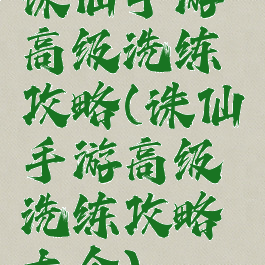 诛仙手游
高级洗练
攻略(诛仙
手游高级
洗练攻略
大全)